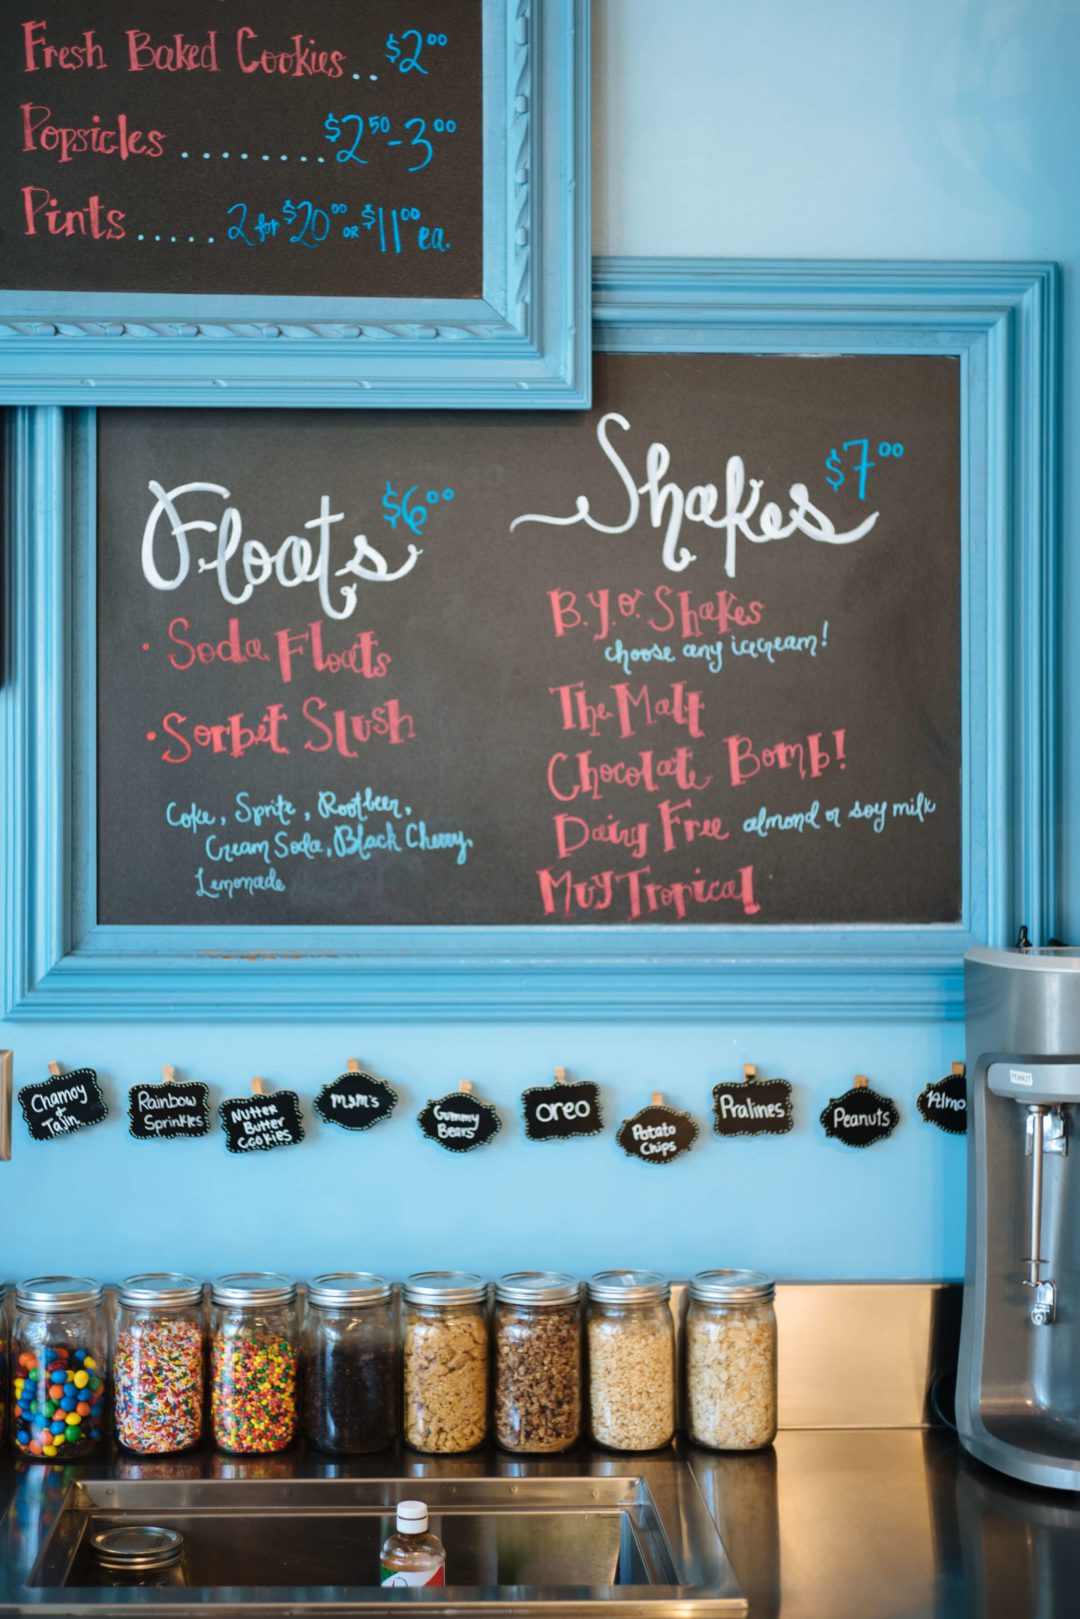 Fresh Baked Cookies.. $2.00
Popsicles ......... $2.50-3.00
Pints ..... 2 for $20.00 or $11.00 ea.
Floats $6.00
• Soda Floats
• Sorbet Slush
Coke, Sprite, Rootbeer,
Cream Soda, Black Cherry,
Lemonade
Shakes $7.00
B.Y.O. Shakes
choose any icecream!
The Malt
Chocolate Bomb!
Dairy Free almond or soy milk
Muy Tropical
Chamoy
+
Tajin
Rainbow
Sprinkles
Nutter
Butter
Cookies
M&M's
Gummy
Bears
OREO
Potato
Chips
Pralines
Peanuts
Almo
PEANUT